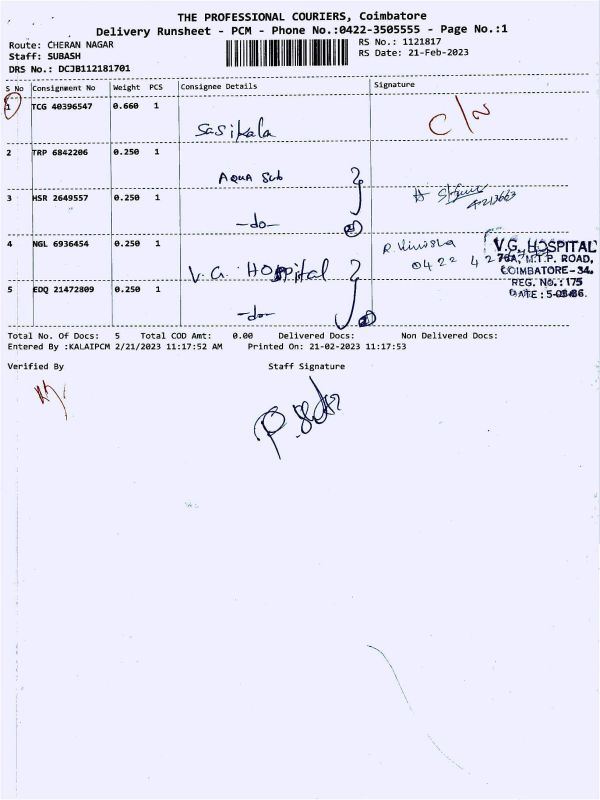 THE PROFESSIONAL COURIERS, Coimbatore
Delivery Runsheet - PCM - Phone No.:0422-3505555 - Page No.:1
Route: CHERAN NAGAR
Staff: SUBASH
DRS No.: DCJB112181701
RS No.: 1121817
RS Date: 21-Feb-2023
S No Consignment No Weight PCS Consignee Details Signature
1 TCG 40396547 0.660 1
Sasikala C/N
2 TRP 6842206 0.250 1
AQUA Sub
3 HSR 2649557 0.250 1
-do- 2
4 NGL 6936454 0.250 1
V.G. HOSpital
R.
0422 42
V.G. HOSPITAL
76A, M.T.P. ROAD,
COIMBATORE-34.
REG. NO.: 175
5 EDQ 21472809 0.250 1
-do- 2
Total No. Of Docs: 5 Total COD Amt: 0.00 Delivered Docs: Non Delivered Docs:
Entered By :KALAIPCM 2/21/2023 11:17:52 AM Printed On: 21-02-2023 11:17:53
Verified By Staff Signature